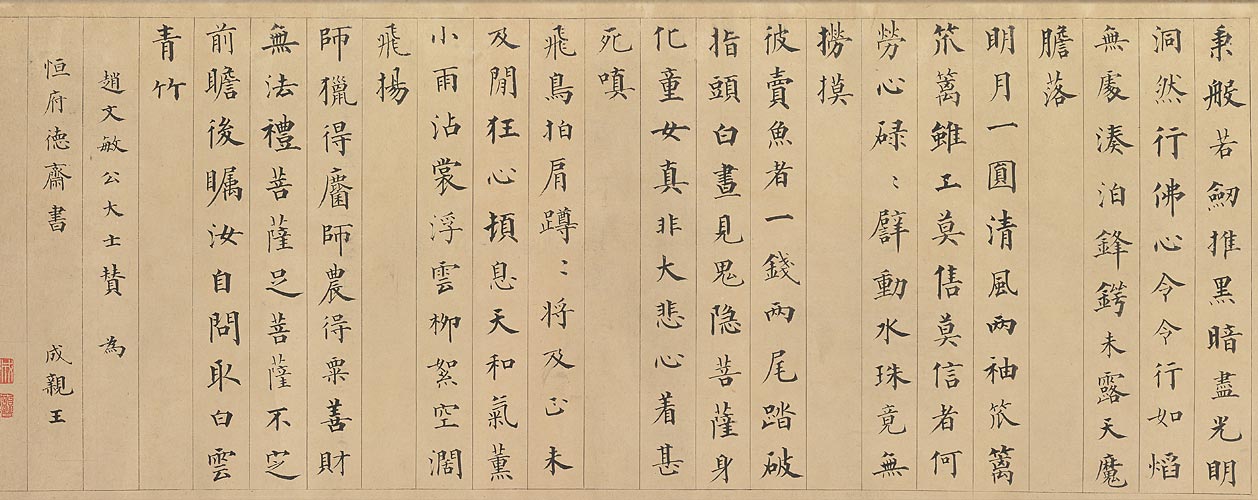 秉般若劒推黑暗盡光明
洞然行佛心令令行如熖
無處湊泊鋒鍔未露天魔
膽落
明月一圓清風兩袖笊篱
笊篱雖工莫售莫信者何
勞心碌〻動水珠竟無
撈摸
彼賣魚者一錢兩尾踏破
指頭白晝見鬼隐菩薩身
化童女真非大悲心着甚
死嗔
飛鳥拍肩蹲〻将及未
及閒狂心頓息天和氣薰
小雨沾裳浮雲柳絮空濶
飛揚
師獵得麕師農得粟善財
無法禮菩薩足菩薩不定
前瞻後矚汝自問取白雲
青竹
趙文敏公大士賛 為
恒府德齋書 成親王